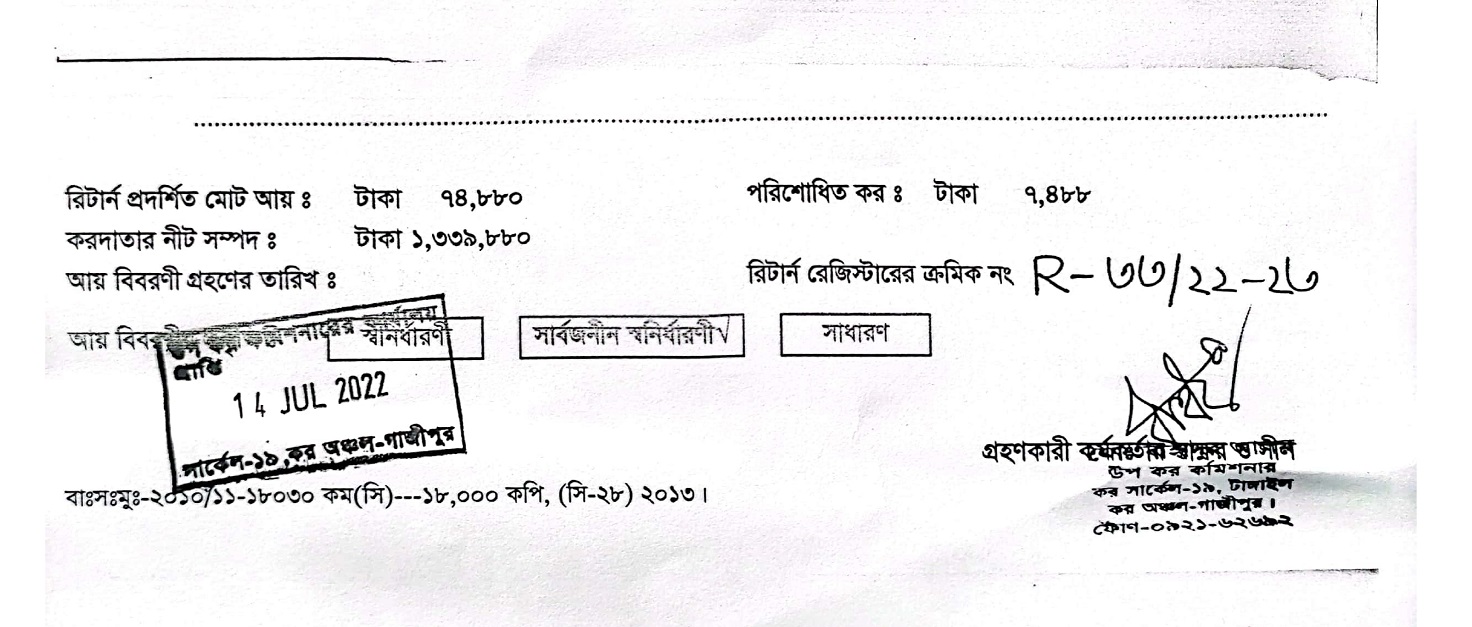 রিটার্ন প্রদর্শিত মোট আয় ঃ টাকা ৭৪,৮৮০ পরিশোধিত কর ঃ টাকা ৭,৪৮৮
করদাতার নীট সম্পদ ঃ টাকা ১,৩৩৯,৮৮০
আয় বিবরণী গ্রহণের তারিখ ঃ রিটার্ন রেজিস্টারের ক্রমিক নং R-৩৩/২২-২৩
আয় স্বনির্ধারণী সার্বজনীন স্বনির্ধারণী√ সাধারণ
14 JUL 2022
সার্কেল-১৯, কর অঞ্চল-গাজীপুর
গ্রহণকারী
উপ কর কমিশনার
কর সার্কেল-১৯, টাঙ্গাইল
কর অঞ্চল-গাজীপুর।
বাঃসঃমুঃ-২০১০/১১-১৮০৩০ কম(সি)---১৮,০০০ কপি, (সি-২৮) ২০১৩।